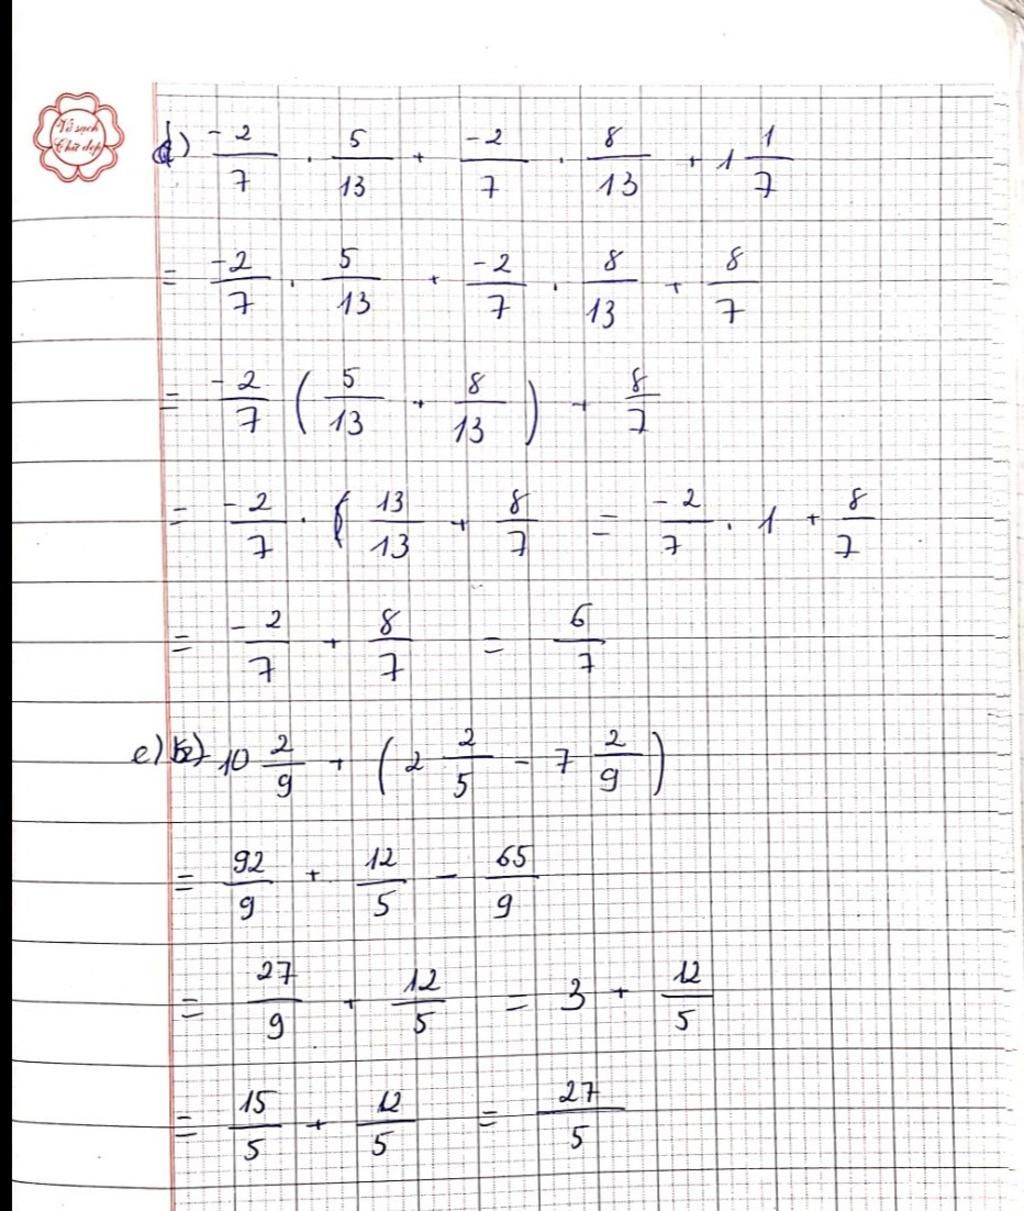 Vở sạch
Chữ đẹp
d) -2/7 . 5/13 + -2/7 . 8/13 + 1 1/7
= -2/7 . 5/13 + -2/7 . 8/13 + 8/7
= -2/7 ( 5/13 + 8/13 ) + 8/7
= -2/7 . 13/13 + 8/7 = -2/7 . 1 + 8/7
= -2/7 + 8/7 = 6/7
e) 10 2/9 + ( 2 2/5 - 7 2/9 )
= 92/9 + 12/5 - 65/9
= 27/9 + 12/5 = 3 + 12/5
= 15/5 + 12/5 = 27/5